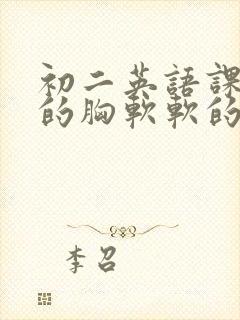 初二英語課
的胸軟軟的
李召